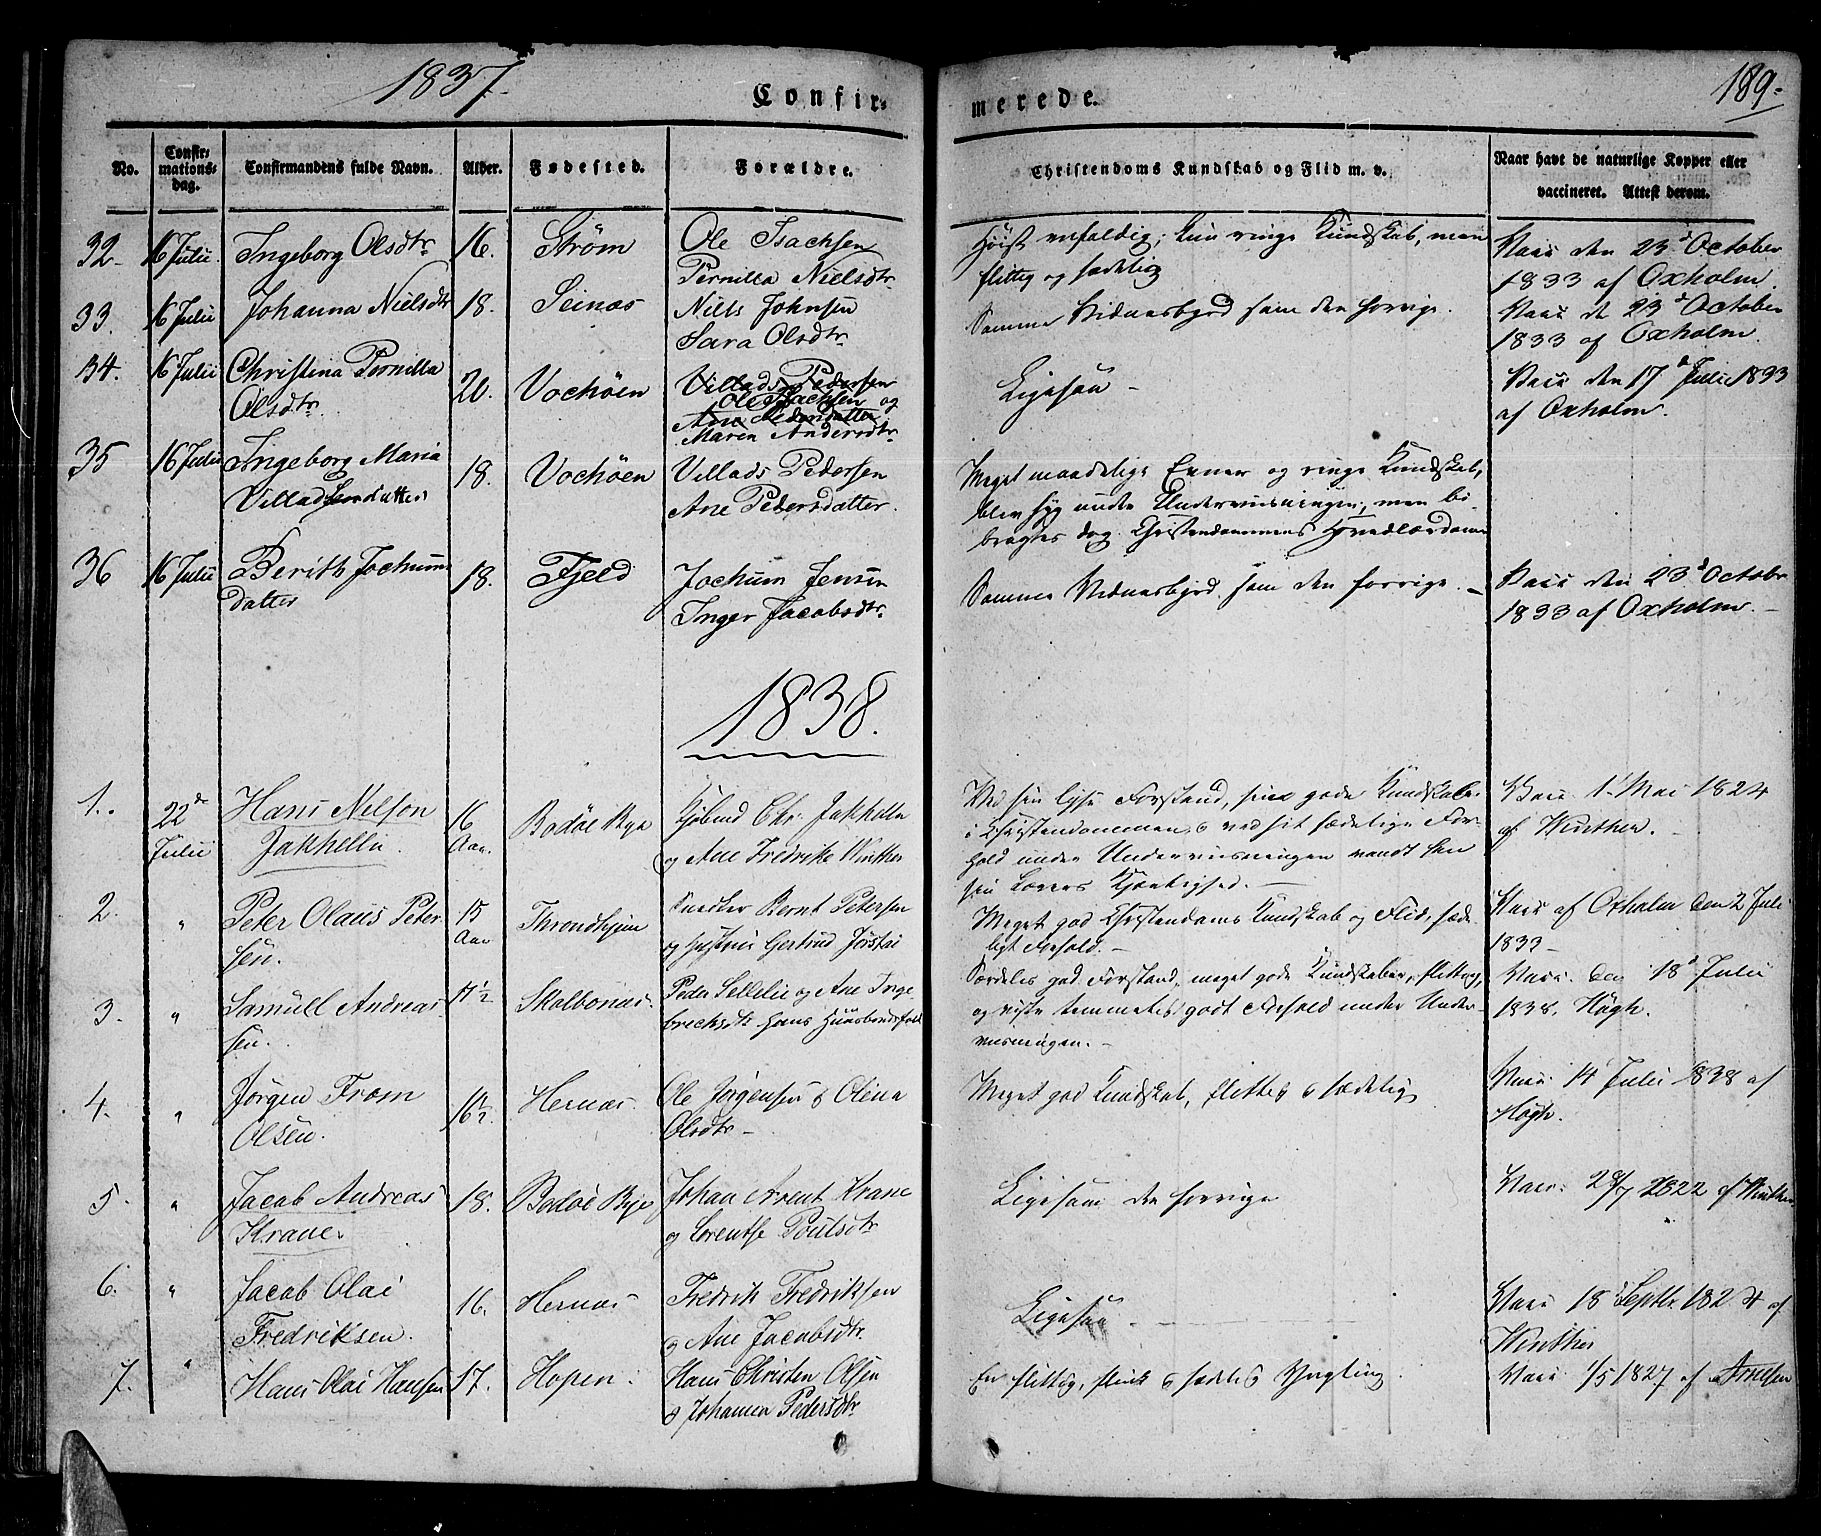 1837.
Confir-
merede.
189.
No.
Confir-
mations-
dag.
Confirmandens fulde Navn.
Alder.
Fødested.
Forældre.
Christendoms Kundskab og Flid m. v.
Naar havt de naturlige Kopper eller
vaccineret. Attest derom.
32. 16 Julii Ingeborg Olsdtr 16. Strøm Ole Isachsen
Pernilla Nielsdtr
Høist enfoldig; kun ringe Kundskab, men
flittig og sædelig
Vacc den 23d October
1833 af Oxholm.
33. 16 Julii Johanna Nielsdtr 18. Seinæs Niels Johnsen
Sara Olsdtr
Samme Vidnesbyrd som den forrige.
Vacc de 23d October
1833 af Oxholm.
34. 16 Julii Christina Pernilla
Olsdtr
20. Vochöen Villads Pedersen
Ole Isachsen og
Ane Pedersdatter
Maren Andersdtr
Ligesaa -
Vacc den 17d Julii 1833
af Oxholm.
35 16 Julii Ingeborg Maria
Villadsendatter
18. Vochöen Villads Pedersen
Ane Pedersdatter.
Meget maadelige Evner og ringe Kundskab,
blev syg under Underviisningen, men bi-
bragtes dog Christendommens Hovedlærdomme
36 16 Julii Berith Jochum
datter
18. Fjeld Jochum Jensen
Inger Jacobsdtr
Samme Vidnesbyrd som den forrige. -
Vacc den 23d Octobr
1833 af Oxholm. -
1838.
1. 22de
Julii
Hans Nelson
Jakhelln.
16
Aar.
Bodøe Bye Chr. Jakhelln
og Ane Fredrikke Winther
Ved sin lyse Forstand, sine gode Kundskaber
i Christendommen & ved sit sædelige For-
hold under Underviisningen vandt han
sin Lærers Kjærlighed. -
Vacc 1' Mai 1824
af Winther. -
2. " Peter Olaus Peter-
sen.
15
Aar
Throndhjem Snedker Bernt Petersen
og Gertrud
Meget god Christendoms Kundskab og Flid, sæde-
ligt Forhold. -
Vacc af Oxholm den 2 Juli
1833 -
3. " Samuel Andreas-
sen.
17 1/2 Skalbonæs. Peder og Ane Inge-
brechtsdtr Hans
Særdeles god Forstand, meget gode Kundskaber, flittig,
og viste temmelig godt Forhold under Under-
viisningen. -
Vacc. den 18d Julii
1838. Høgh.
4. " Jørgen From
Olsen.
16 1/2. Hernæs. Ole Jørgensen & Olena
Olsdtr -
Meget god Kundskab, flittig & sædelig
Vacc 14 Julii 1838 af
Høgh.
5. " Jacob Andreas
Krane.
18. Bodøe Bye Johan Arent Krane
og Lorentse Poulsdtr
Ligesom den forrige
Vacc. 1822 af Winther
6. " Jacob Olai
Fredriksen.
16. Hernæs Fredrik Fredriksen
& Ane Jacobsdtr
Ligesaa -
Vacc 18 Septbr 1824 af
Winther
7. " Hans Olai Hansen 17. Hopen. Hans Christen Olsen
& Johanna Pedersdtr
En flittig, flink & sædelig Yngling.
Vacc 1/5 1827 af